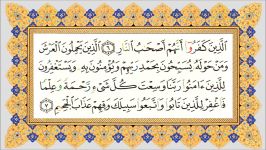 الَّذِينَ كَفَرُوا أَنَّهُمْ أَصْحَابُ النَّارِ ﴿٦﴾ الَّذِينَ يَحْمِلُونَ الْعَرْشَ
وَمَنْ حَوْلَهُ يُسَبِّحُونَ بِحَمْدِ رَبِّهِمْ وَيُؤْمِنُونَ بِهِ وَيَسْتَغْفِرُونَ
لِلَّذِينَ ءَامَنُوا رَبَّنَا وَسِعْتَ كُلَّ شَيْءٍ رَحْمَةً وَعِلْمًا
فَاغْفِرْ لِلَّذِينَ تَابُوا وَاتَّبَعُوا سَبِيلَكَ وَقِهِمْ عَذَابَ الْجَحِيمِ ﴿٧﴾